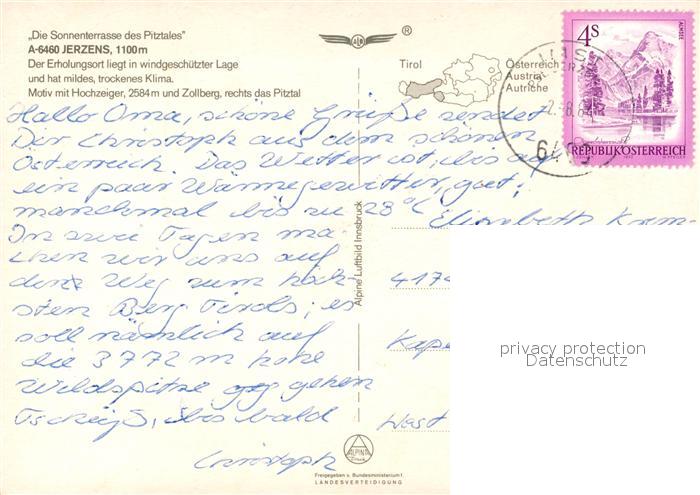 „Die Sonnenterrasse des Pitztales"
A-6460 JERZENS, 1100 m
Der Erholungsort liegt in windgeschützter Lage
und hat mildes, trockenes Klima.
Motiv mit Hochzeiger, 2584 m und Zollberg, rechts das Pitztal
®
Tirol
Österreich
Austria
Autriche
4 S
ALMSEE
REPUBLIK ÖSTERREICH
Hallo Oma, schöne Grüße sendet
Dir Christoph aus dem schönen
Österreich. Das Wetter ist, bis auf
ein paar Wärmegewitter, gut,
manchmal bis zu 28°C
In zwei Tagen ma-
chen wir uns auf
den Weg zum höch-
sten Berg Tirols; es
soll nämlich auf
die 3772 m hohe
Wildspitze gehen
Tschüß, bis bald
Christoph
Elisabeth
Alpine Luftbild Innsbruck
privacy protection
Datenschutz
West
ALPINE
Freigegeben v. Bundesministerium f.
LANDESVERTEIDIGUNG